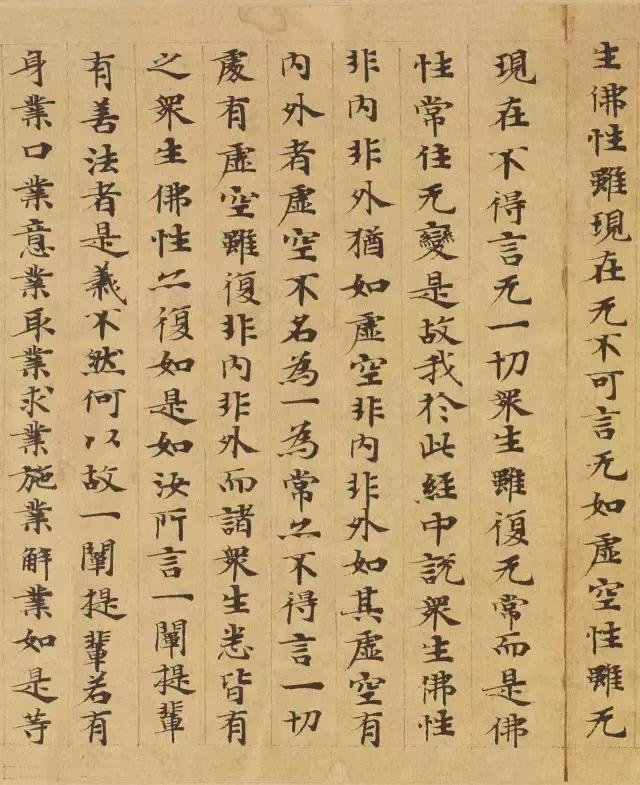 生佛性雖現在无不可言无如虛空性雖无
現在不得言无一切衆生雖復无常而是佛
性常住无變是故我於此經中說衆生佛性
非内非外猶如虛空非内非外如其虛空有
内外者虛空不名為一為常亦不得言一切
處有虛空雖復非内非外而諸衆生悉皆有
之衆生佛性亦復如是如汝所言一闡提輩
有善法者是義不然何以故一闡提輩若有
身業口業意業取業求業施業解業如是等